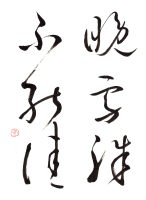 晩雪殊
不能佳